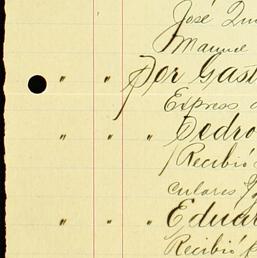 José
Manuel
" " Por Gast
Express
" " " Pedro
Recibió
culares
" " " Eduar
Recibió